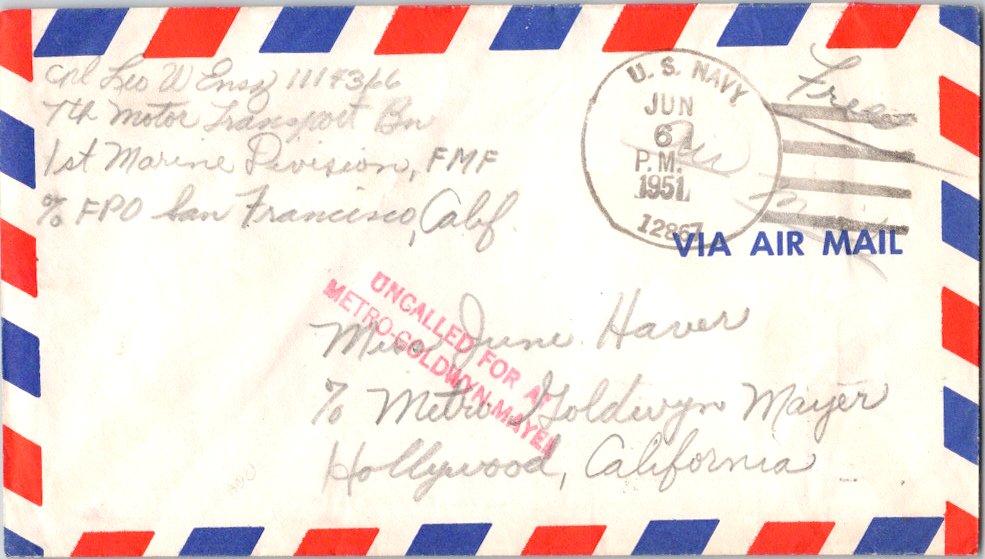 Cpl Leo W Ensz 1114366
7th Motor Transport Bn
1st Marine Division, FMF
c/o FPO San Francisco, Calif.
U. S. NAVY
JUN
6
P.M.
1951
12867
Free
Air Mail
VIA AIR MAIL
UNCALLED FOR AT
METRO-GOLDWYN-MAYER
Miss June Haver
c/o Metro Goldwyn Mayer
Hollywood, California